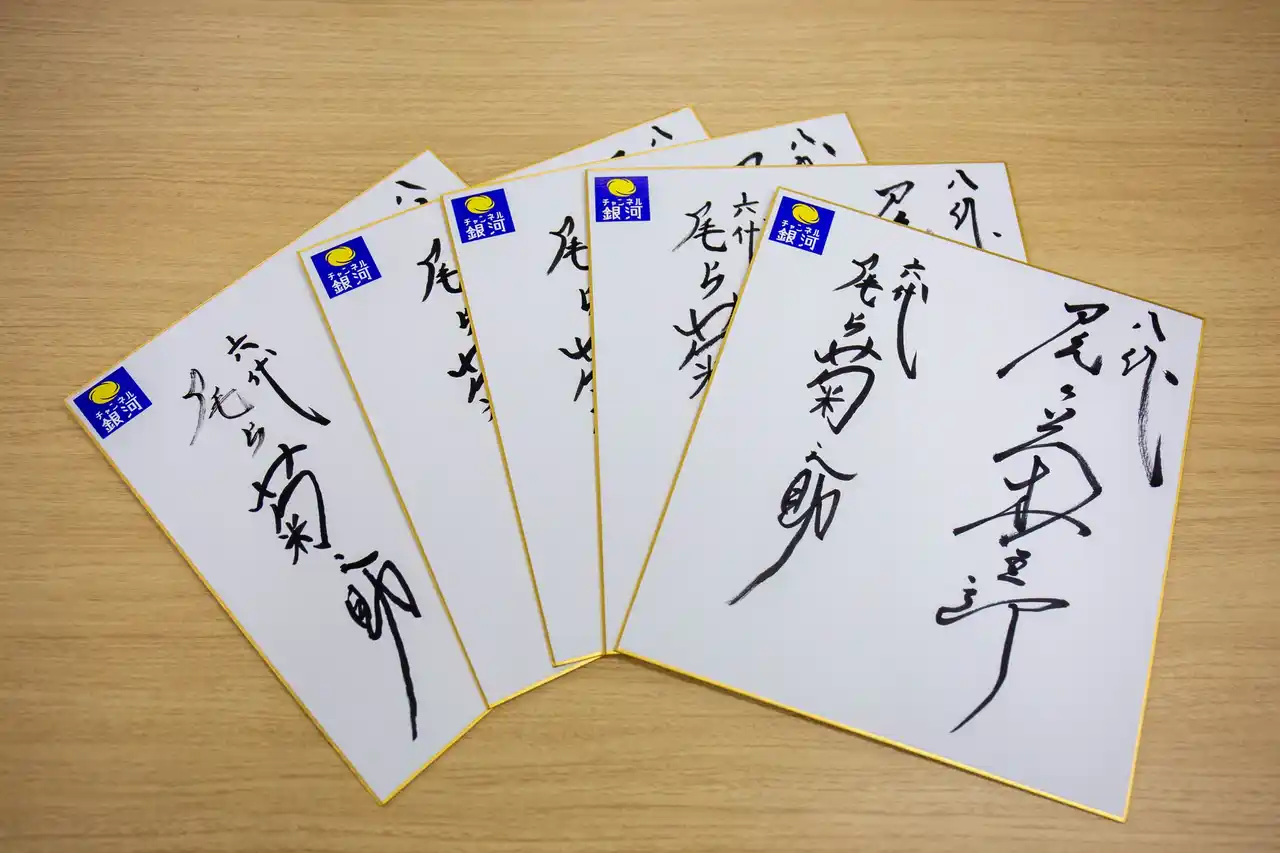 チャンネル
銀河
八
六代
尾上菊之助
チャンネル
銀河
尾上菊
チャンネル
銀河
八代
尾上菊
チャンネル
銀河
八代
尾
六代
尾上菊
チャンネル
銀河
八代
尾上菊五郎
六代
尾上菊之助